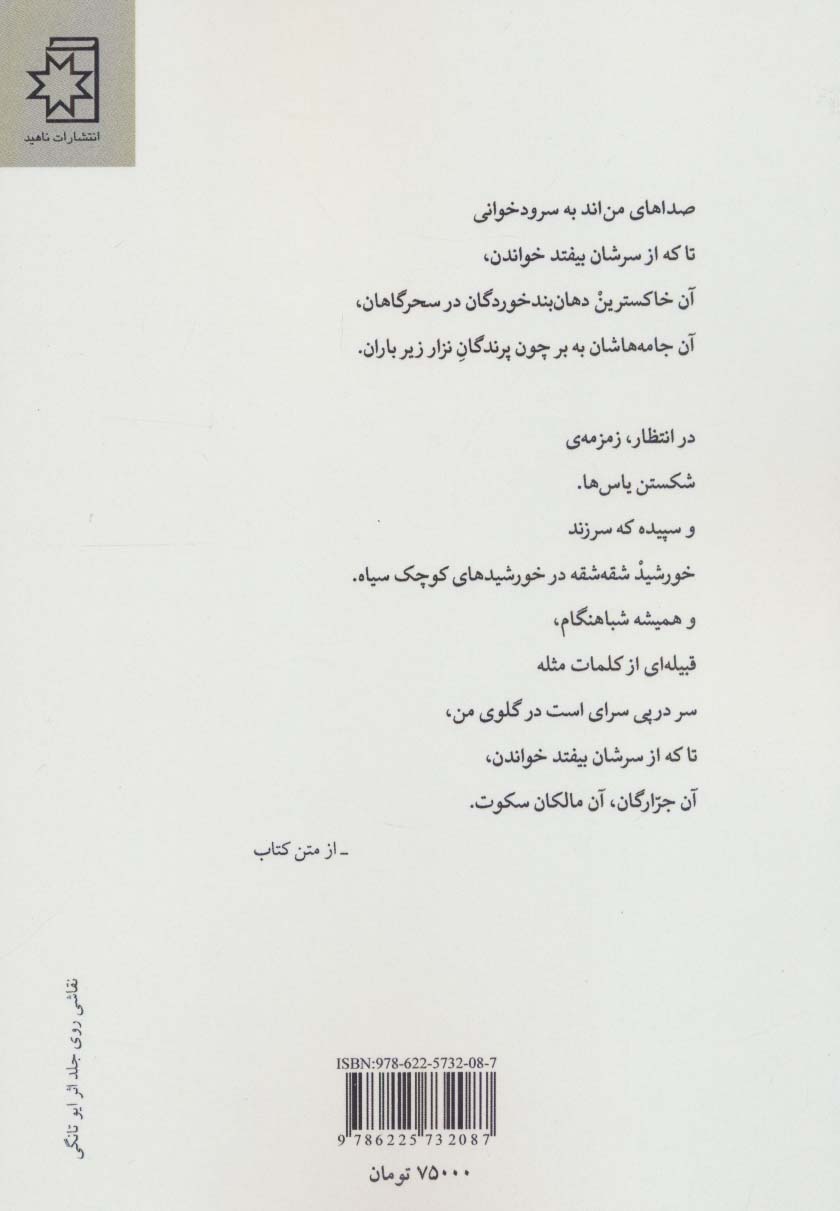 انتشارات ناهید
صداهای من‌اند به سرودخوانی
تا که از سرشان بیفتد خواندن،
آن خاکسترینْ دهان‌بندخوردگان در سحرگاهان،
آن جامه‌هاشان به بر چون پرندگانِ نزار زیر باران.
در انتظار، زمزمه‌ی
شکستن یاس‌ها.
و سپیده که سرزند
خورشیدْ شقه‌شقه در خورشیدهای کوچک سیاه.
و همیشه شباهنگام،
قبیله‌ای از کلمات مثله
سر درپی سرای است در گلوی من،
تا که از سرشان بیفتد خواندن،
آن جرّارگان، آن مالکان سکوت.
ـ از متن کتاب
نقاشی روی جلد اثر ایو تانگی
ISBN:978-622-5732-08-7
9 786225 732087
۷۵۰۰۰ تومان